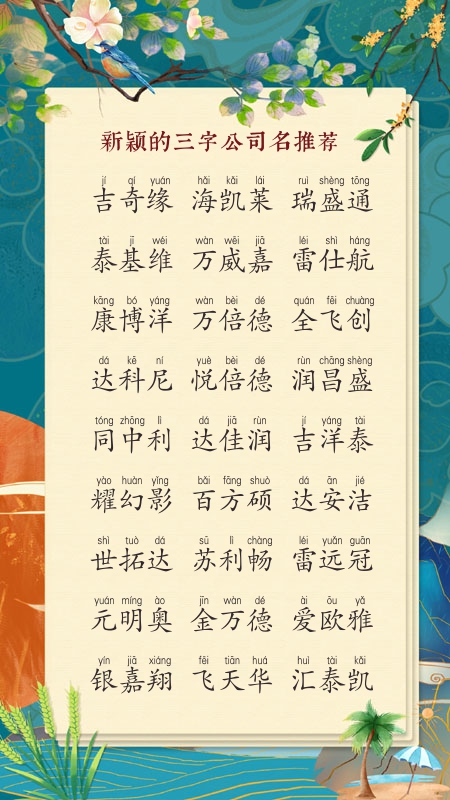 新颖的三字公司名推荐
jí qí yuán hǎi kǎi lái ruì shèng tōng
吉奇缘 海凯莱 瑞盛通
tài jī wéi wàn wēi jiā léi shì háng
泰基维 万威嘉 雷仕航
kāng bó yáng wàn bèi dé quán fēi chuàng
康博洋 万倍德 全飞创
dá kē ní yuè bèi dé rùn chāng shèng
达科尼 悦倍德 润昌盛
tóng zhōng lì dá jiā rùn jí yáng tài
同中利 达佳润 吉洋泰
yào huàn yǐng bǎi fāng shuò dá ān jié
耀幻影 百方硕 达安洁
shì tuò dá sū lì chàng léi yuǎn guān
世拓达 苏利畅 雷远冠
yuán míng ào jīn wàn dé ài ōu yǎ
元明奥 金万德 爱欧雅
yín jiā xiáng fēi tiān huá huì tài kǎi
银嘉翔 飞天华 汇泰凯